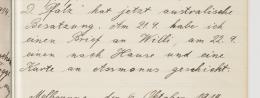 D. "Pfalz" hat jetzt australische
Besatzung. Am 21.4. habe ich
einen Brief an Willi, am 22.4.
einen nach Hause und eine
Karte an Assmanns geschickt.
Melbourne, den 6. Oktober 1914